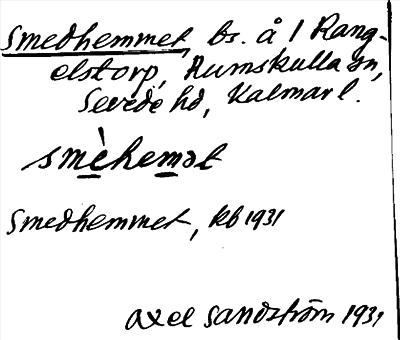 Smedhemmet, bs. å 1 Rang-
elstorp, Rumskulla sn,
Sevede hd, Kalmar l.
smèhemət
Smedhemmet, kb 1931
Axel Sandström 1931